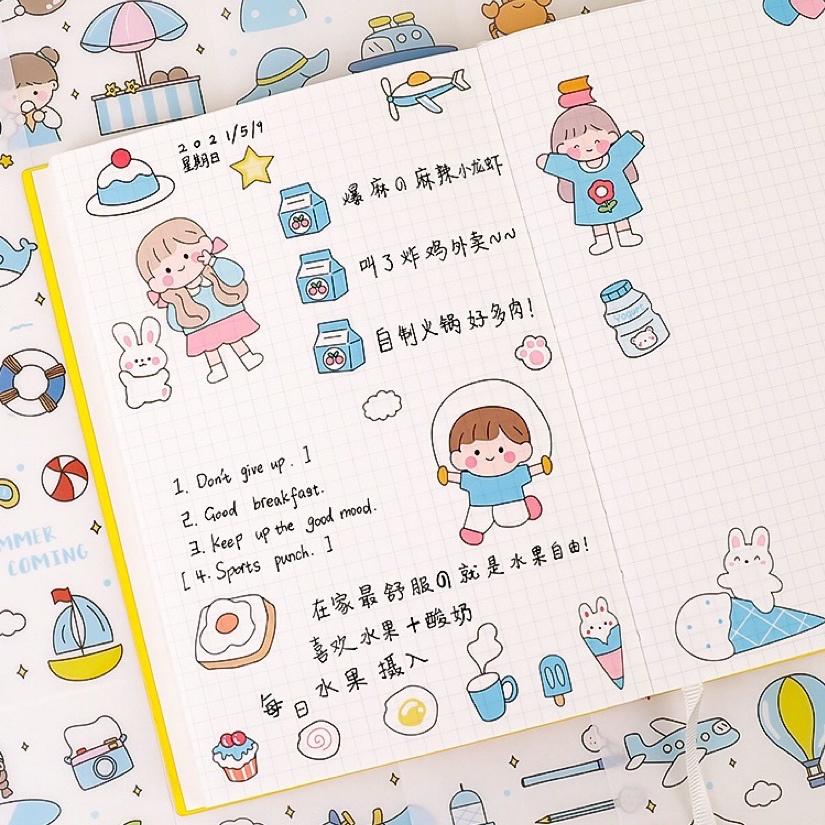 2021/5/9
星期日
爆麻の麻辣小龙虾
叫了炸鸡外卖~~
自制火锅好多肉!
Yogurt
1. Don't give up. ]
2. Good breakfast.
3. Keep up the good mood.
[ 4. Sports punch. ]
在家最舒服の就是水果自由!
喜欢水果+酸奶
每日水果摄入
MMER
COMING